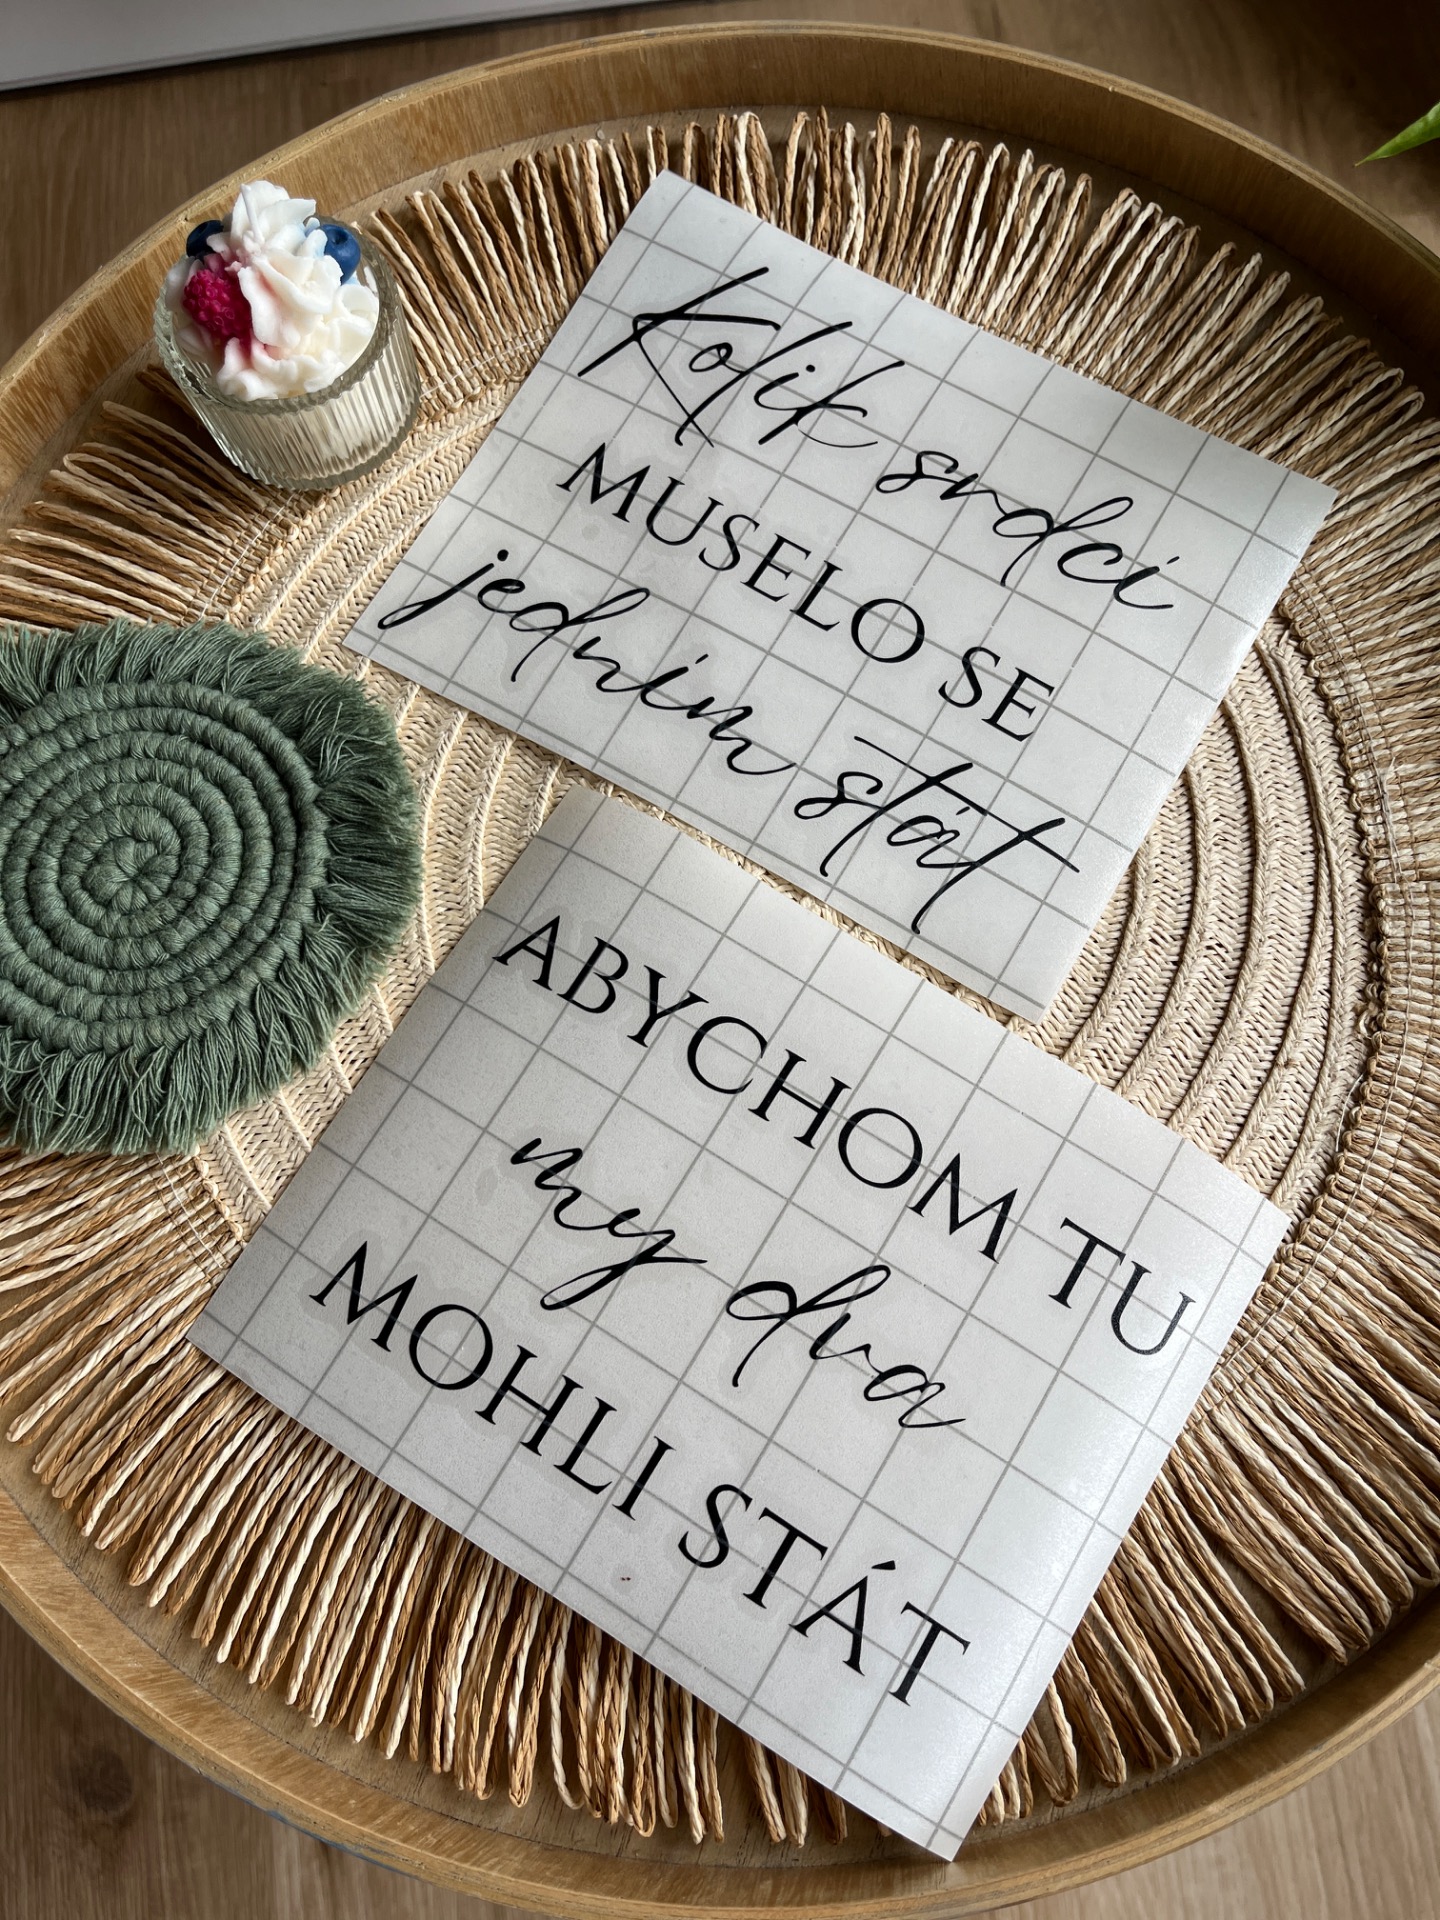 Kolik srdcí
MUSELO SE
jedním stát
ABYCHOM TU
my dva
MOHLI STÁT